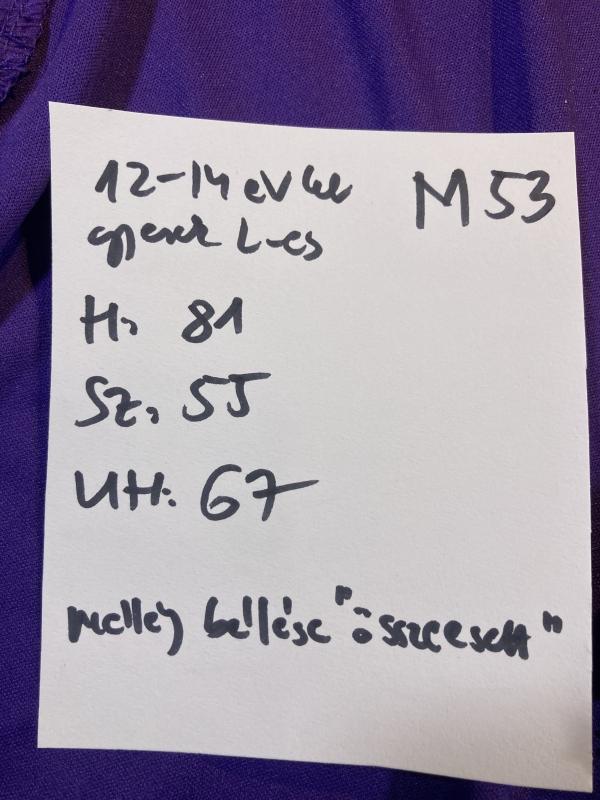 12-14 éves M 53
gyerek L-es
H: 81
Sz: 55
UH: 67
mellény bélése "összeesett"